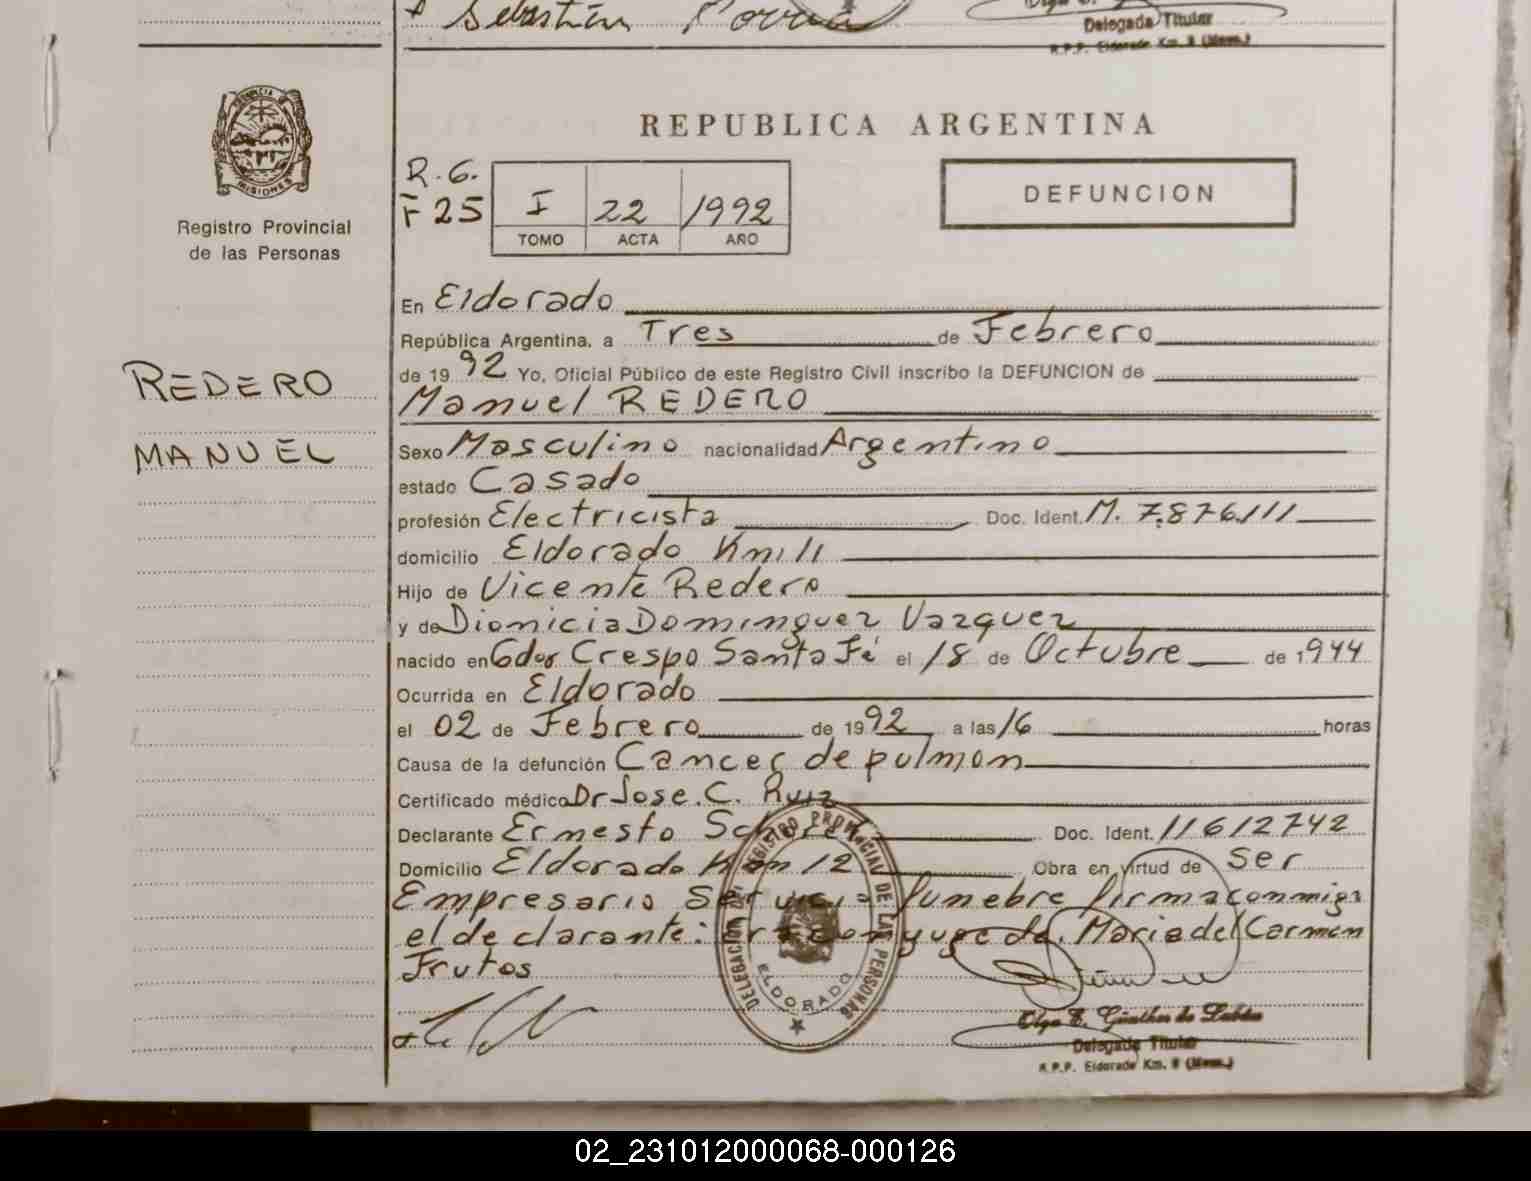 Sebastián
Delegada Titular
R.P.P. Eldorado Km. 9 (Mnes.)
PROVINCIA DE
MISIONES
Registro Provincial
de las Personas
REPUBLICA ARGENTINA
R.G.
F 25
I 22 1992
TOMO ACTA AÑO
DEFUNCION
REDERO
MANUEL
En Eldorado
República Argentina, a Tres de Febrero
de 1992 Yo, Oficial Público de este Registro Civil inscribo la DEFUNCION de
Manuel REDERO
Sexo Masculino nacionalidad Argentino
estado Casado
profesión Electricista Doc. Ident. M. 7.876.111
domicilio Eldorado Km 11
Hijo de Vicente Redero
y de Dionicia Dominguez Vazquez
nacido en Gdor Crespo Santa Fé el 18 de Octubre de 1944
Ocurrida en Eldorado
el 02 de Febrero de 1992 a las 16 horas
Causa de la defunción Cancer de pulmon
Certificado médico Dr Jose. C. Ruiz
Declarante Ernesto Doc. Ident. 11612742
Domicilio Eldorado Km 12 Obra en virtud de ser
Empresario Servicio funebre firma conmigo
el declarante: Era conyuge de Maria del Carmen
Frutos
DELEGACION DEL REGISTRO PROVINCIAL DE LAS PERSONAS
ELDORADO
Olga E. Günther de
Delegada Titular
R.P.P. Eldorado Km. 9 (Mnes.)
02_231012000068-000126